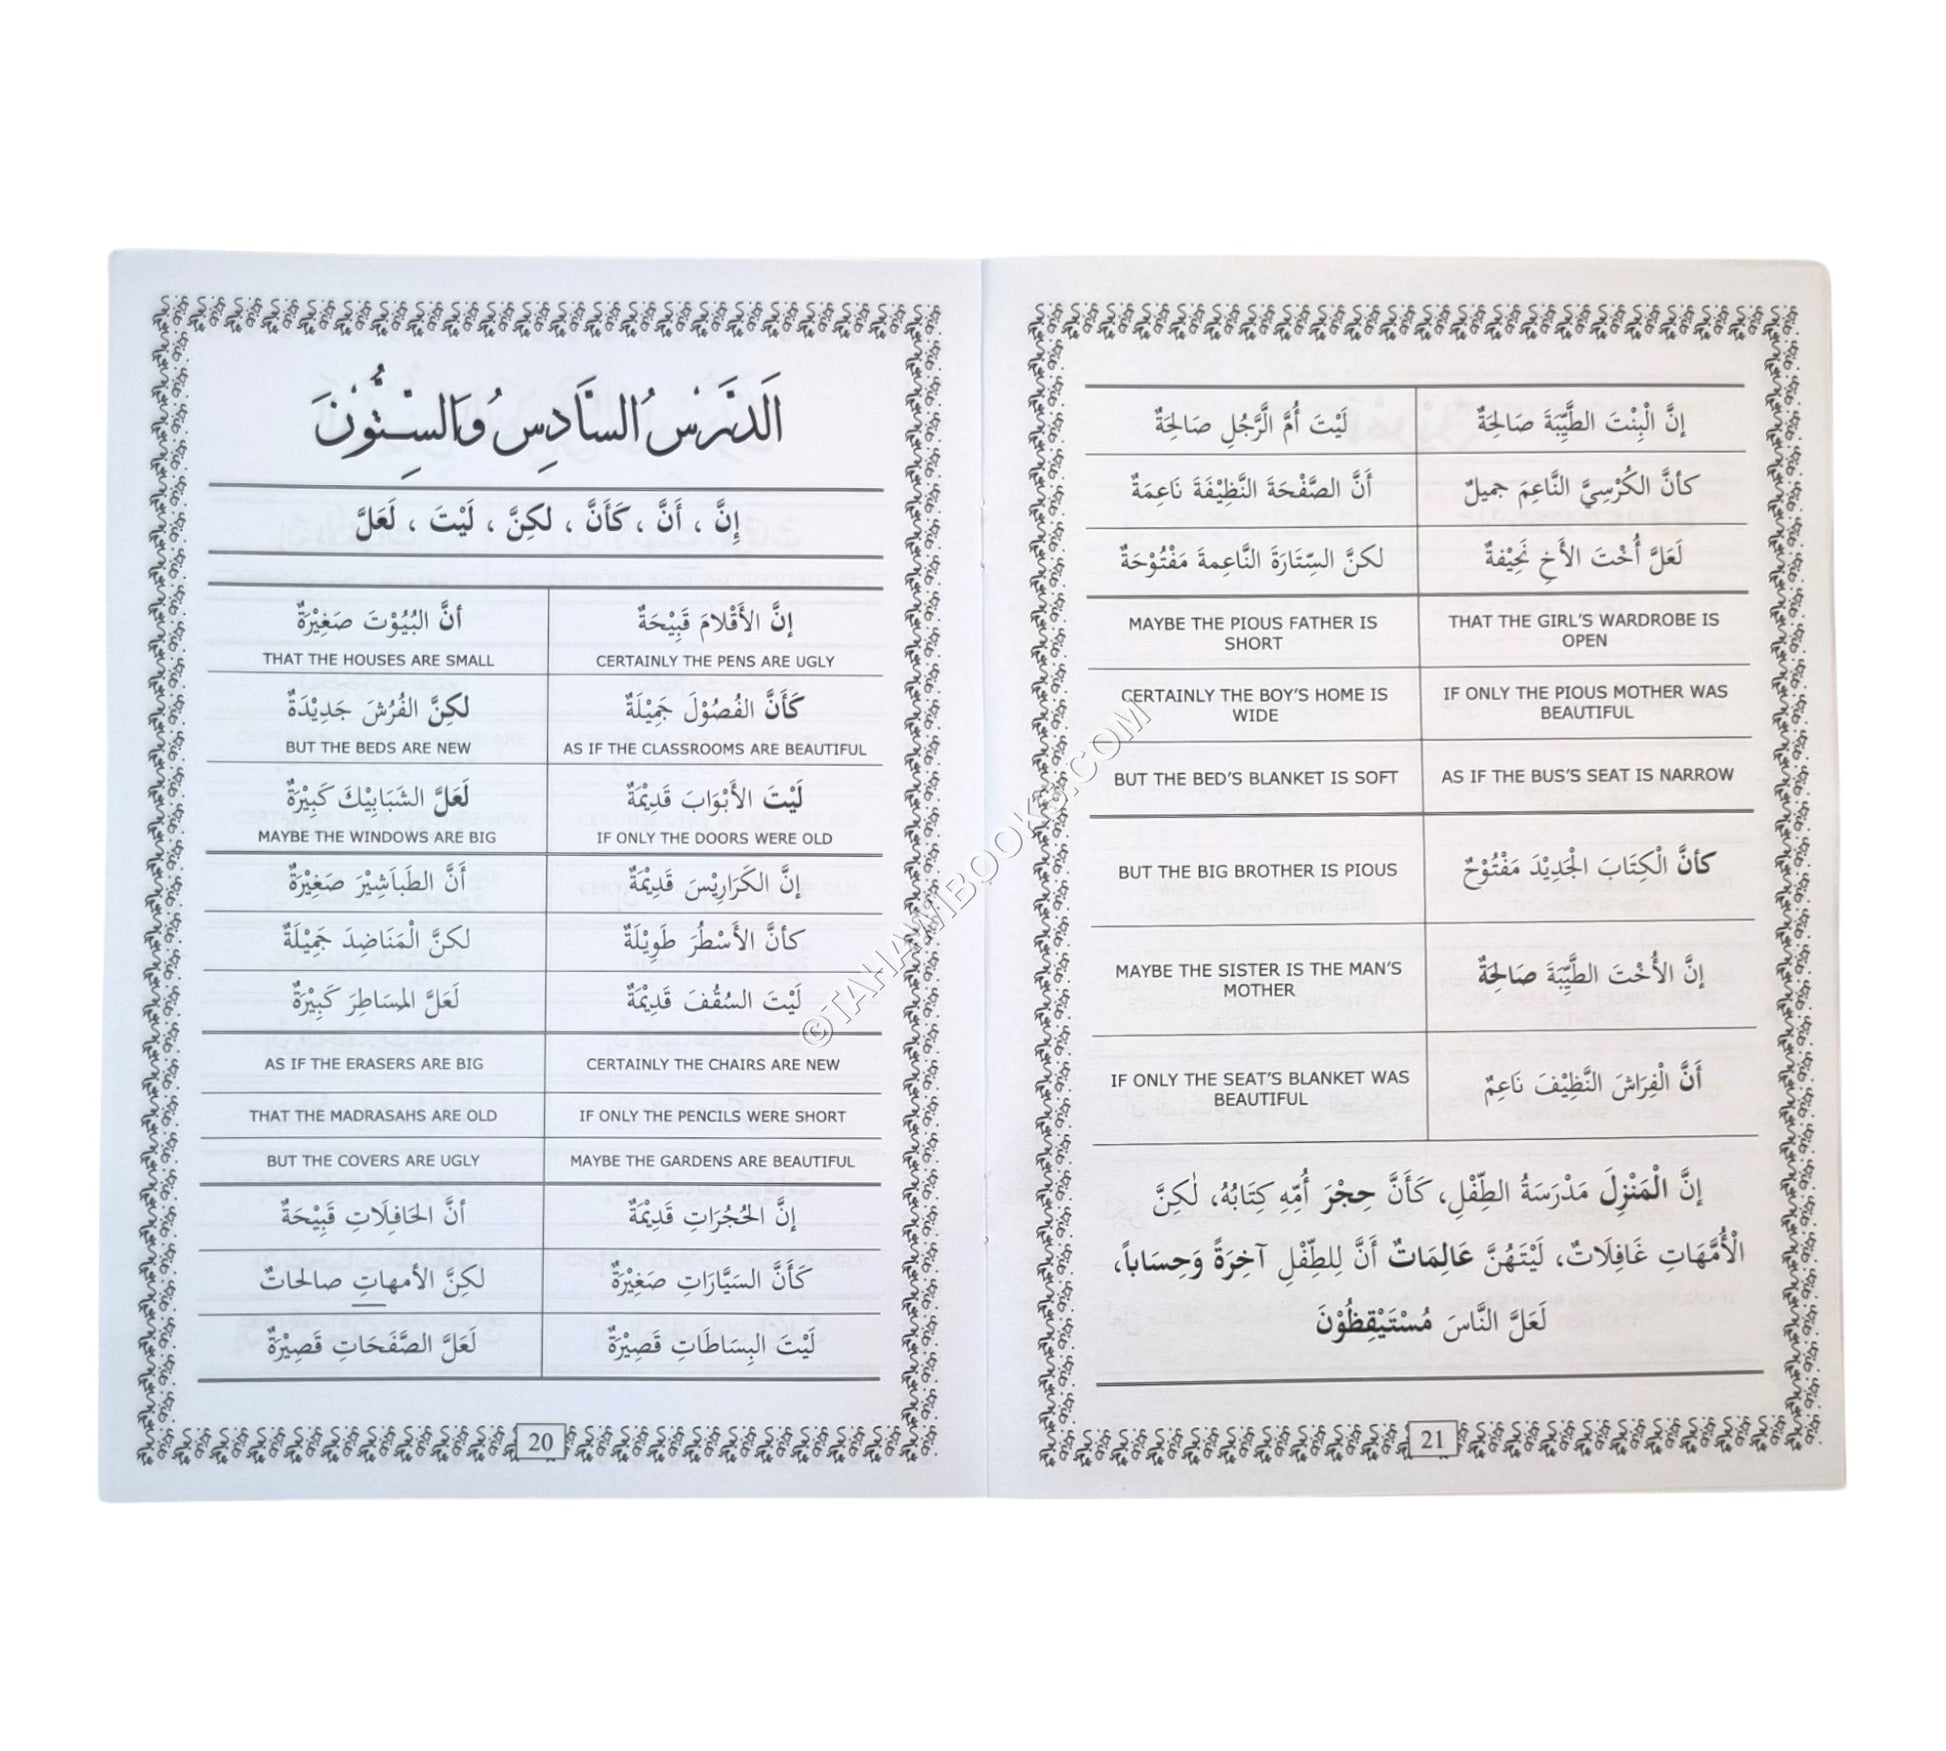 اَلدَّرْسُ السَّادِسُ وَالسِتُّونَ
إِنَّ ، أَنَّ ، كَأَنَّ ، لكِنَّ ، لَيْتَ ، لَعَلَّ
إنَّ الأَقْلامَ قَبِيْحَةٌ
CERTAINLY THE PENS ARE UGLY
أنَّ البُيُوْتَ صَغِيْرَةٌ
THAT THE HOUSES ARE SMALL
كَأَنَّ الفُصُوْلَ جَمِيْلَةٌ
AS IF THE CLASSROOMS ARE BEAUTIFUL
لكِنَّ الفُرُشَ جَدِيْدَةٌ
BUT THE BEDS ARE NEW
لَيْتَ الأَبْوَابَ قَدِيْمَةٌ
IF ONLY THE DOORS WERE OLD
لَعَلَّ الشَبَابِيْكَ كَبِيْرَةٌ
MAYBE THE WINDOWS ARE BIG
إنَّ الكَرَارِيْسَ قَدِيْمَةٌ
أَنَّ الطَباَشِيْرَ صَغِيْرَةٌ
كأنَّ الأَسْطُرَ طَوِيْلَةٌ
لكنَّ الْمَنَاضِدَ جَمِيْلَةٌ
لَيْتَ السُقُفَ قَدِيْمَةٌ
لَعَلَّ المِسَاطِرَ كَبِيْرَةٌ
CERTAINLY THE CHAIRS ARE NEW
AS IF THE ERASERS ARE BIG
IF ONLY THE PENCILS WERE SHORT
THAT THE MADRASAHS ARE OLD
MAYBE THE GARDENS ARE BEAUTIFUL
BUT THE COVERS ARE UGLY
إنَّ الحُجُرَاتِ قَدِيْمَةٌ
أنَّ الحَافِلَاتِ قَبِيْحَةٌ
كَأَنَّ السَيَّارَاتِ صَغِيْرَةٌ
لكِنَّ الأمهاتِ صالحاتٌ
لَيْتَ البِسَاطَاتِ قَصِيْرَةٌ
لَعَلَّ الصَّفَحَاتِ قَصِيْرَةٌ
20
إنَّ الْبِنْتَ الطَّيِّبَةَ صَالِحَةٌ
لَيْتَ أُمَّ الَّرَجُلِ صَالِحَةٌ
كأنَّ الكُرْسِيَّ النَّاعِمَ جميلٌ
أَنَّ الصَّفْحَةَ النَّظِيْفَةَ نَاعِمَةٌ
لَعَلَّ أُخْتَ الأَخِ نَحِيْفةٌ
لكنَّ السِّتَارَةَ النَّاعِمةَ مَفْتُوْحَةٌ
THAT THE GIRL'S WARDROBE IS
OPEN
MAYBE THE PIOUS FATHER IS
SHORT
IF ONLY THE PIOUS MOTHER WAS
BEAUTIFUL
CERTAINLY THE BOY'S HOME IS
WIDE
AS IF THE BUS'S SEAT IS NARROW
BUT THE BED'S BLANKET IS SOFT
كأنَّ الْكِتَابَ الْجَدِيْدَ مَفْتُوْحٌ
BUT THE BIG BROTHER IS PIOUS
إنَّ الأُخْتَ الطَّيِّبَةَ صَالِحَةٌ
MAYBE THE SISTER IS THE MAN'S
MOTHER
أَنَّ الْفِرَاشَ النَّظِيْفَ نَاعِمٌ
IF ONLY THE SEAT'S BLANKET WAS
BEAUTIFUL
إنَّ الْمَنْزِلَ مَدْرَسَةُ الطِّفْلِ، كَأَنَّ حِجْرَ أُمِّهِ كِتَابُهُ، لٰكِنَّ
الْأُمَّهَاتِ غَافِلَاتٌ، لَيْتَهُنَّ عَالِمَاتٌ أَنَّ لِلطِّفْلِ آخِرَةً وَحِسَاباً،
لَعَلَّ النَّاسَ مُسْتَيْقِظُوْنَ
21
©TAHAWIBOOKS.COM